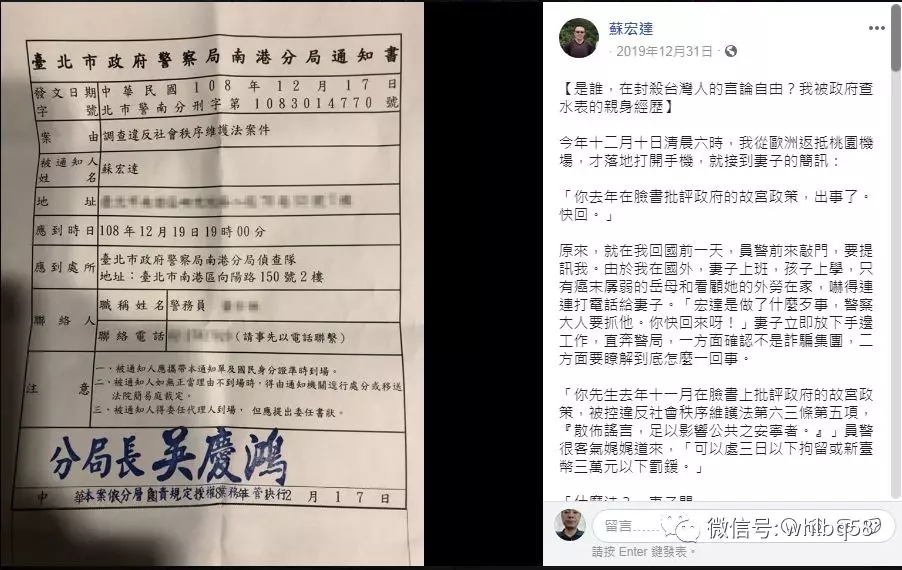 臺北市政府警察局南港分局通知書
發文日期 中華民國 108 年 12 月 17 日
字號 北市警南分刑字第 1083014770 號
案由 調查違反社會秩序維護法案件
被通知人姓名 蘇宏達
地址
應到時日 108年12月19日19時00分
應到處所 臺北市政府警察局南港分局偵查隊
地址:臺北市南港區向陽路150號2樓
聯絡人 職稱姓名 警務員
聯絡電話 (請事先以電話聯繫)
注意 一、被通知人應攜帶本通知單及國民身分證準時到場。
二、被通知人如無正當理由不到場時,得由通知機關逕行處分或移送
法院簡易庭裁定。
三、被通知人得委任代理人到場,但應提出委任書狀。
分局長 吳慶鴻
中 華 本案依分層負責規定授權業務主管決行 2 月 17 日
蘇宏達
· 2019年12月31日 ·
【是誰,在封殺台灣人的言論自由?我被政府查
水表的親身經歷】
今年十二月十日清晨六時,我從歐洲返抵桃園機
場,才落地打開手機,就接到妻子的簡訊:
「你去年在臉書批評政府的故宮政策,出事了。
快回。」
原來,就在我回國前一天,員警前來敲門,要提
訊我。由於我在國外,妻子上班,孩子上學,只
有癌末孱弱的岳母和看顧她的外勞在家,嚇得連
連打電話給妻子。「宏達是做了什麼歹事,警察
大人要抓他。你快回來呀!」妻子立即放下手邊
工作,直奔警局,一方面確認不是詐騙集團,二
方面要瞭解到底怎麼一回事。
「你先生去年十一月在臉書上批評政府的故宮政
策,被控違反社會秩序維護法第六三條第五項,
『散佈謠言,足以影響公共之安寧者。』」員警
很客氣娓娓道來,「可以處三日以下拘留或新臺
幣三萬元以下罰鍰。」
「什麼法?」妻子問
留言……
微信号: whtbq58
請按 Enter 鍵發表。